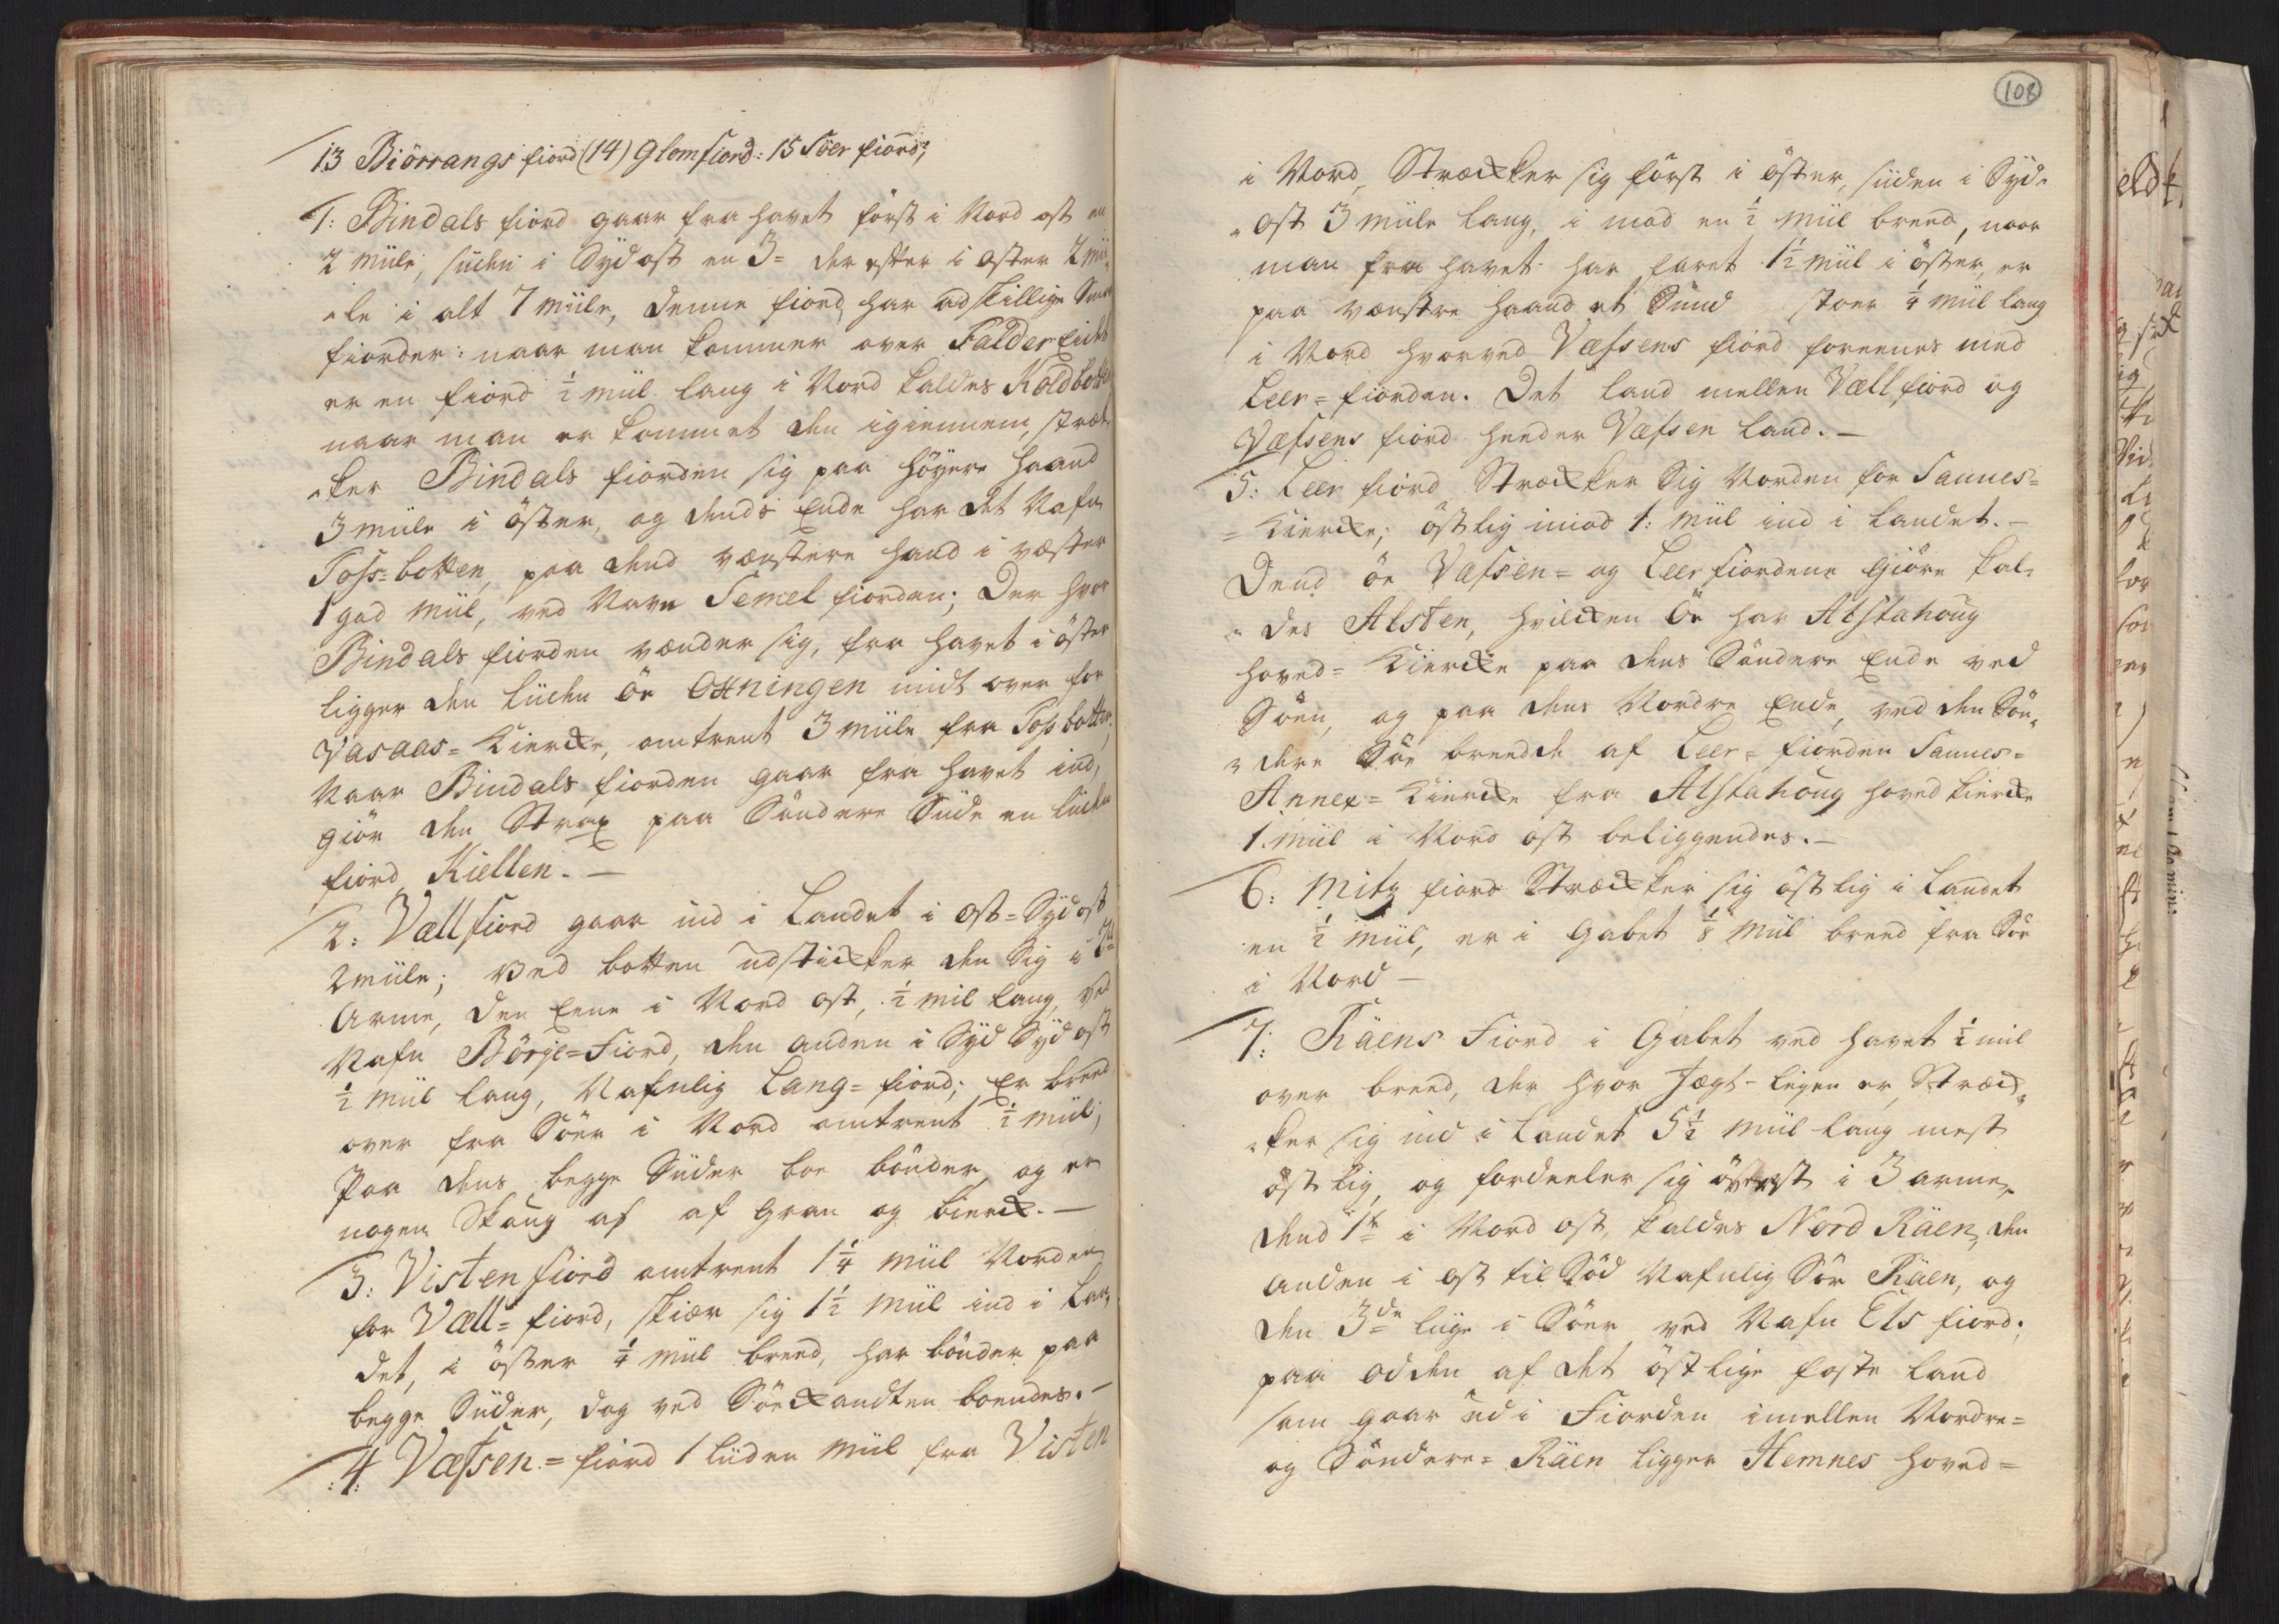 13 Biörrangs fiord (14) Glomfiord: 15 Söer fiord;
1: Bindals fiord gaar fra havet först i Nord ost en
2 miile, siiden i Sydost en 3= der efter i öster 2 mii„
„le i alt 7 miile, denne fiord har adskillige Smaa
fiorder: naar man kommer over FalderEidet
er en fiord ½ miil lang i Nord kaldes Koldbotten
naar man er kommet den igiennem, stræk„
„ker Bindals fiorden sig paa höyere haand
3 miile i öster, og dends Ende har det Nafn
Tofs=botten, paa dend venstere hand i væster
1 god Miil, ved Navn Temel fiorden; Der hvor
Bindals fiorden vender sig, fra havet i öster
ligger den liiden Öe Oxningen midt over for
Vasaas=Kiercke, omtrent 3 miile fra Tofsbotten;
Naar Bindals fiorden gaar fra havet ind,
giör den Strax paa Söndere Siide en liiden
fiord Kiellen. —
2: Vællfiord gaar ind i Landet i Ost=Sydost
2 miile; Ved botten udsticker den sig i 2de
Arme, den Eene i Nord ost, ½ miil lang, ved
Nafn Börje=Fiord, den anden i Syd Sydost
½ Miil lang, Nafnlig Lang=fiord; Er breed
over fra Söer i Nord omtrent ½ miil;
Paa dens begge Siider boe bönder og er
nogen Skoug af af Gran og bierck. —
3: Vistenfiord omtrent 1¼ Miil Norden
for Væll=fiord, skiær sig 1½ Miil ind i Lan„
det, i öster ¼ Miil breed, har bönder paa
begge Siider, dog ved Söekandten boendes. —
:4: Væfsen=fiord 1 liiden Miil fra Visten
108
i Nord, Strækker sig först i öster, siiden i Syd„
„Ost 3 miile lang, i mod en ½ Miil breed, naar
man fra havet har faret 1½ Miil i öster, er
paa venstre haand et Sund stoer ¼ Miil lang
i Nord hvorved Væfsens fiord foreenes med
Leer=fiorden. Det land mellen Vællfiord og
Væfsens fiord heeder Væfsen Land. —
5: Leer fiord Strækker Sig Norden for Sannes=
=Kiercke; östlig imod 1: Miil ind i Landet. —
Dend öe Væfsen= og Leerfiordene giöre kal„
„des Alsten, hvilcken Öe har Alstahoug
hoved=Kiercke paa dens Söndere Ende ved
Söen, og paa dens Nordre Ende, ved den Sön„
„dere Söe breedde af Leer=fiorden Sannes=
Annex=Kiercke fra Alstahoug hoved kiercke
1. Miil i Nord ost beliggendes. —
6: Mitz fiord Strækker sig östlig i Landet
en ½ Miil, er i Gabet ⅛ Miil breed fra Sör
i Nord —
7: Räens Fiord i Gabet ved havet ½ miil
over breed, der hvor Jægt-leyen er, Stræck„
„ker sig ind i Landet 5½ Miil lang mest
östlig, og fordeeler sig överst i 3 arme,
dend 1te i Nord ost, kaldes Nord Räen, den
anden i ost til Söd Nafnlig Sör Räen, og
den 3de liige i Söer ved Nafn Els fiord;
paa odden af det östlige faste land
som gaar ud i Fiorden imellen Nordre=
og Söndere=Räen ligger Hemnes hoved=